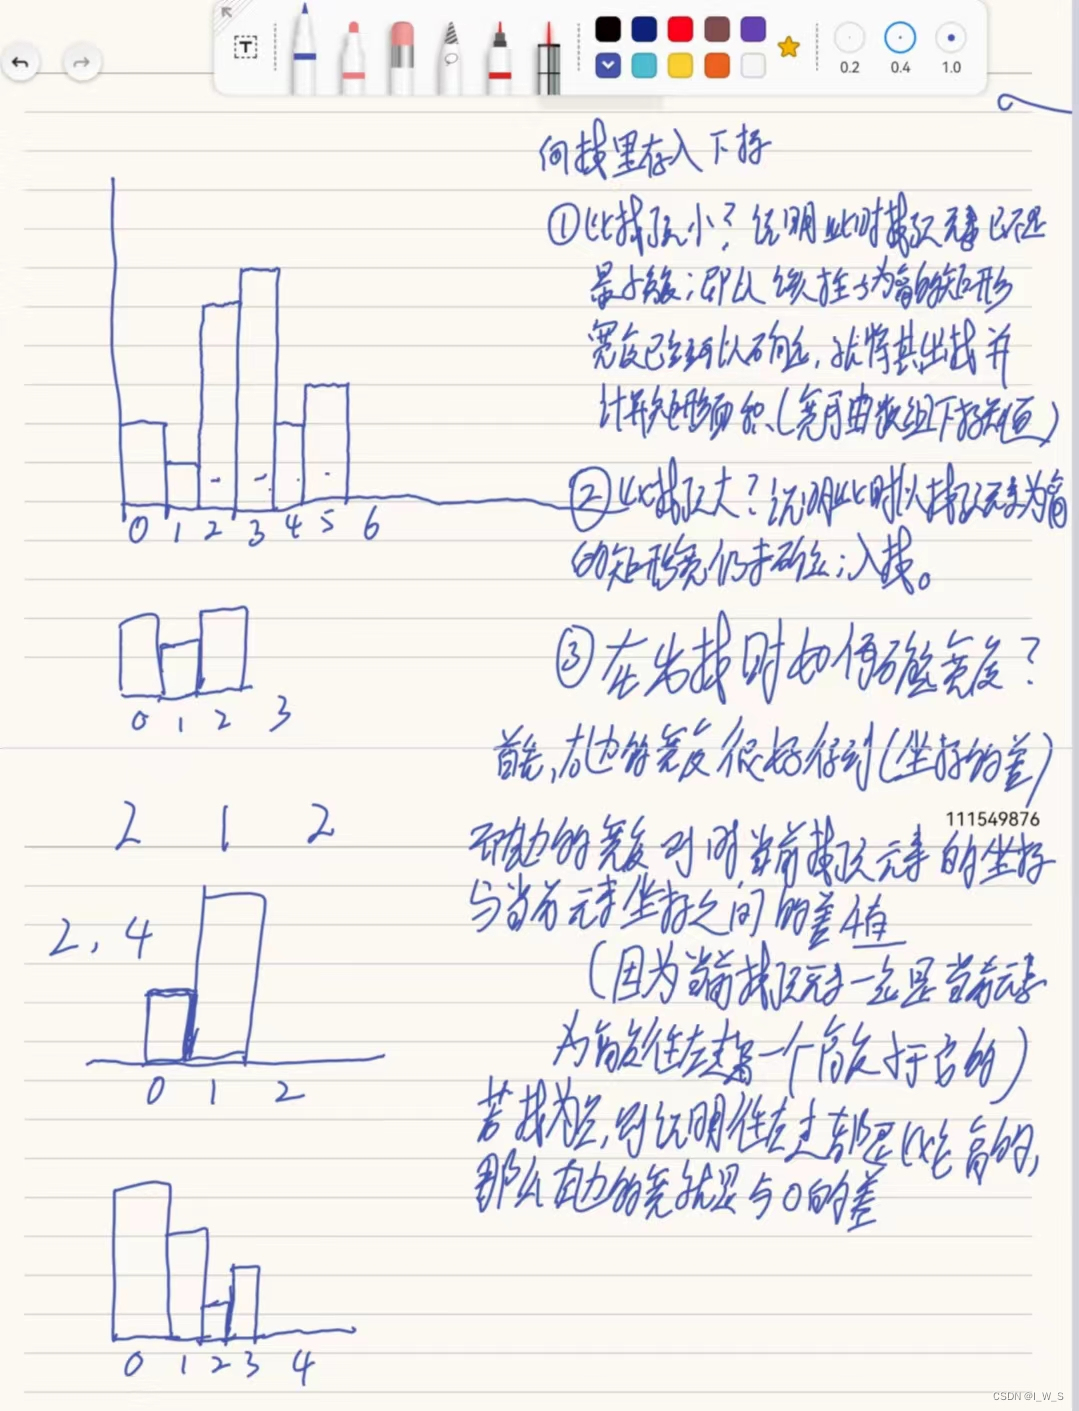 T
0.2 0.4 1.0
向栈里存入下标
①比栈顶小？说明此时栈顶元素已不是
最小的；即以该柱子为高的矩形
宽度已经可以确定，就将其出栈并
计算矩形面积、(宽可由数组下标知道)
②比栈顶大？说明此时以栈顶元素为高
的矩形宽仍未确定；入栈。
0 1 2 3 4 5 6
③在出栈时如何确定宽度？
0 1 2 3
首先，右边的宽度很好得到(坐标的差)
2 1 2
111549876
而左边的宽度则时当前栈顶元素的坐标
与当前元素坐标之间的差值
2，4
(因为当前栈顶元素一定是当前元素
为高度往左走第一个高度小于它的)
0 1 2
若栈为空，则说明往左走都是比它高的，
那么左边的宽就是与0的差
0 1 2 3 4
CSDN @I_W_S